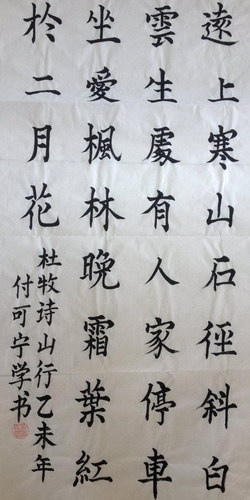 遠上寒山石徑斜白
雲生處有人家停車
坐愛楓林晚霜葉紅
於二月花
杜牧诗山行乙未年
付可宁学书